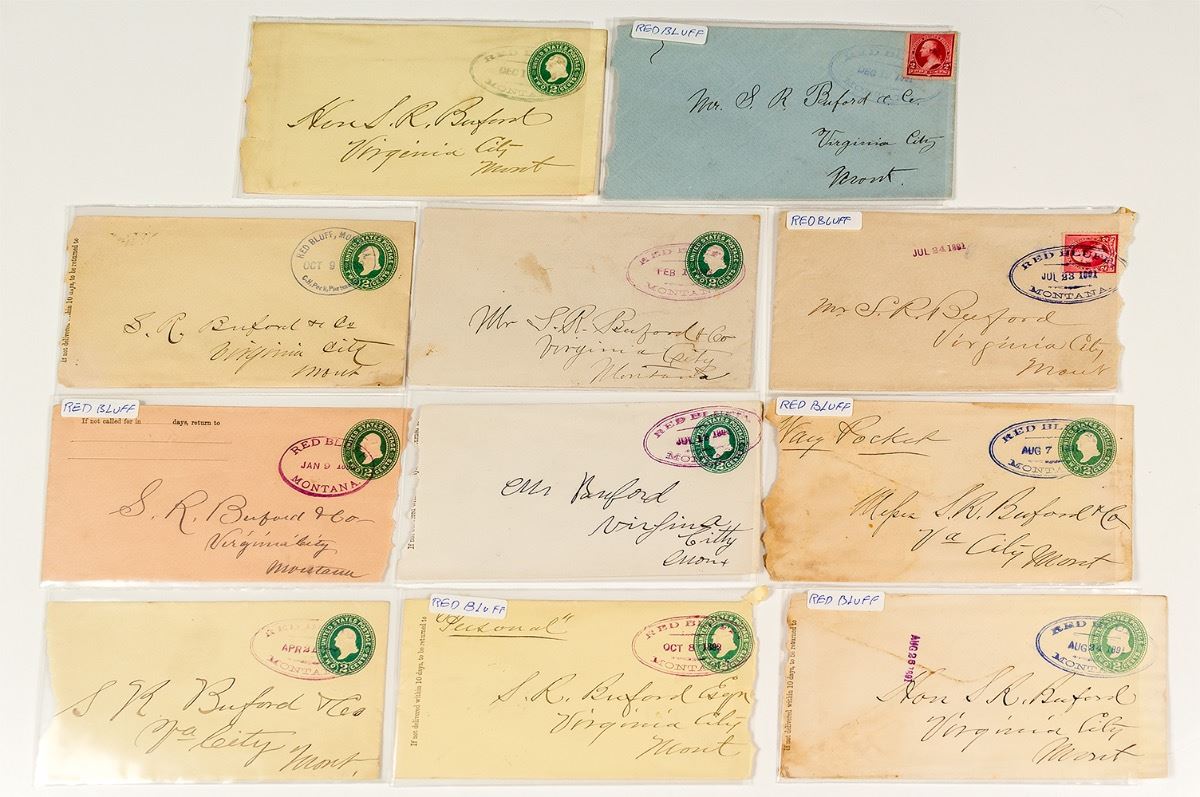 RED BLUFF
DEC 1
MONTANA
UNITED STATES POSTAGE
TWO 2 CENTS
Hon S. R. Buford
Virginia City
Mont
RED BLUFF
RED BL
DEC 1 1891
2
Mr. S. R Buford & Co.
Virginia City
Mont.
If not delivered within 10 days, to be returned to
RED BLUFF, MO
OCT 9
UNITED STATES POSTAGE
TWO 2 CENTS
S. R. Buford & Co
Virginia City
Mont
RED BLUFF
FEB 1
MONTANA
UNITED STATES POSTAGE
TWO 2 CENTS
Mr S. R. Buford & Co
Virginia City
Montana
RED BLUFF
JUL 24 1891
RED BLUFF
JUL 23 1891
MONTANA.
Mr S. R. Buford
Virginia City
Mont
RED BLUFF
If not called for in days, return to
RED BLUFF
JAN 9 18
MONTANA.
TWO 2 CENTS
S. R. Buford & Co
Virginia City
Montana
RED BLUFF
JUL
MONT
UNITED STATES POSTAGE
TWO 2 CENTS
Mr Buford
Virginia
Citty
Mont
RED BLUFF
Way Pocket
RED BLUFF
AUG 7
MONTANA
TWO 2 CENTS
Messrs S. R. Buford & Co
Va City Mont
RED BLUFF
APR 21
MONTANA
UNITED STATES POSTAGE
TWO 2 CENTS
S R Buford & Co
Va City
Mont.
RED BLUFF
If not delivered within 10 days, to be returned to
"Personal"
RED BLUFF
OCT 8 1892
MONTANA
TWO 2 CENTS
S. R. Buford Esqr
Virginia City
Mont
RED BLUFF
If not delivered within 10 days, to be returned to
AUG 26 1891
RED BLUFF
AUG 1891
MONTANA
TWO 2 CENTS
Hon S. R. Buford
Virginia City
Mont